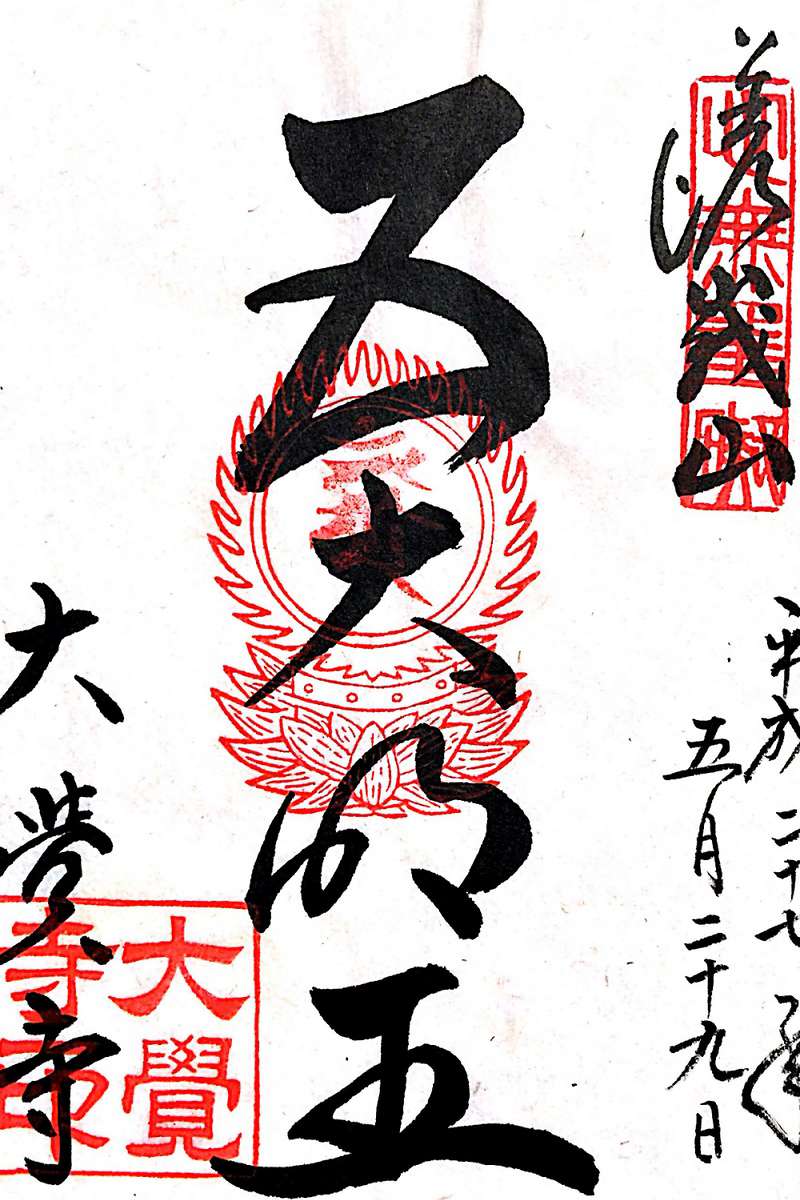 嵯峨山
心無罣礙
平成二十七年
五月二十九日
五大明王
大覚寺
大覺
寺印